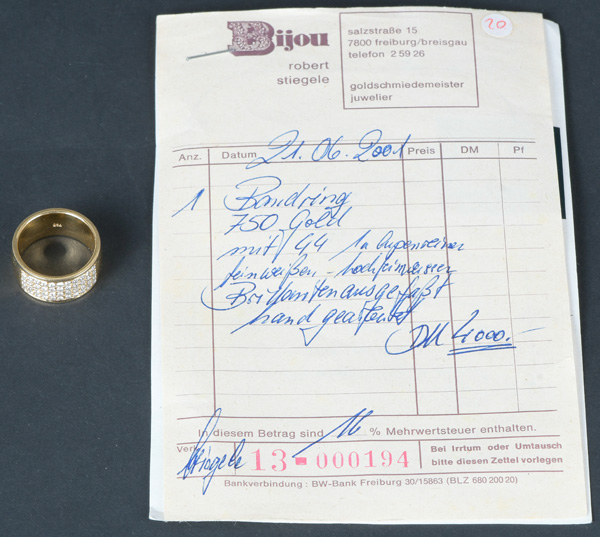 Bijou
robert
stiegele
salzstraße 15
7800 freiburg/breisgau
telefon 2 59 26
goldschmiedemeister
juwelier
20
Anz. Datum 21.06.2001 Preis DM Pf
1 Bandring
750-Gold
mit 44 1a lupenreiner
feinweißen - hochfeinweissen
Brillanten ausgefaßt
hand gearbeitet
DM 4000.-
In diesem Betrag sind 16 % Mehrwertsteuer enthalten.
Stiegele
13-000194
Bei Irrtum oder Umtausch
bitte diesen Zettel vorlegen
Bankverbindung: BW-Bank Freiburg 30/15863 (BLZ 680 200 20)